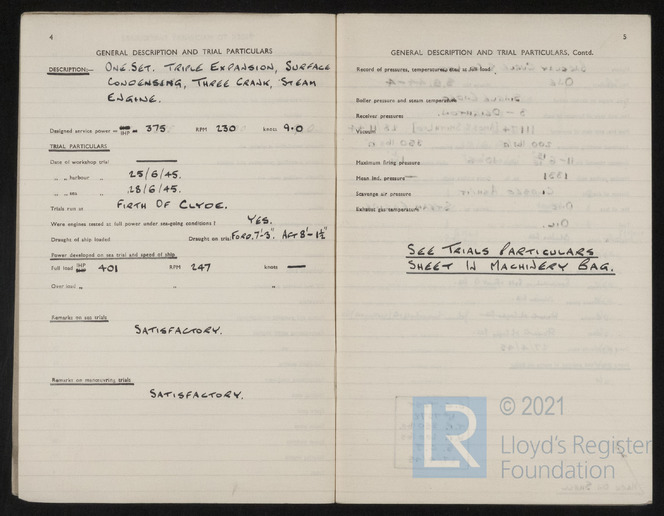 4
GENERAL DESCRIPTION AND TRIAL PARTICULARS
DESCRIPTION:— ONE. SET. TRIPLE EXPANSION, SURFACE
CONDENSING, THREE CRANK, STEAM
ENGINE.
Designed service power — IHP 375 RPM 230 knots 9.0
TRIAL PARTICULARS
Date of workshop trial —
„ „ harbour „ 25/6/45.
„ „ sea „ 28/6/45.
Trials run at FIRTH OF CLYDE.
Were engines tested at full power under sea-going conditions? YES.
Draught of ship loaded Draught on trial FORD. 7'-3". AFT 8'-1½"
Power developed on sea trial and speed of ship
Full load IHP 401 RPM 247 knots —
Over load „ „ „
Remarks on sea trials
SATISFACTORY.
Remarks on manœuvring trials
SATISFACTORY.
5
GENERAL DESCRIPTION AND TRIAL PARTICULARS, Contd.
Record of pressures, temperatures, etc. at full load
Boiler pressure and steam temperature
Receiver pressures
Vacuum
Maximum firing pressure
Mean ind. pressure
Scavenge air pressure
Exhaust gas temperature
SEE TRIALS PARTICULARS
SHEET IN MACHINERY BAG.
LR
© 2021
Lloyd's Register
Foundation